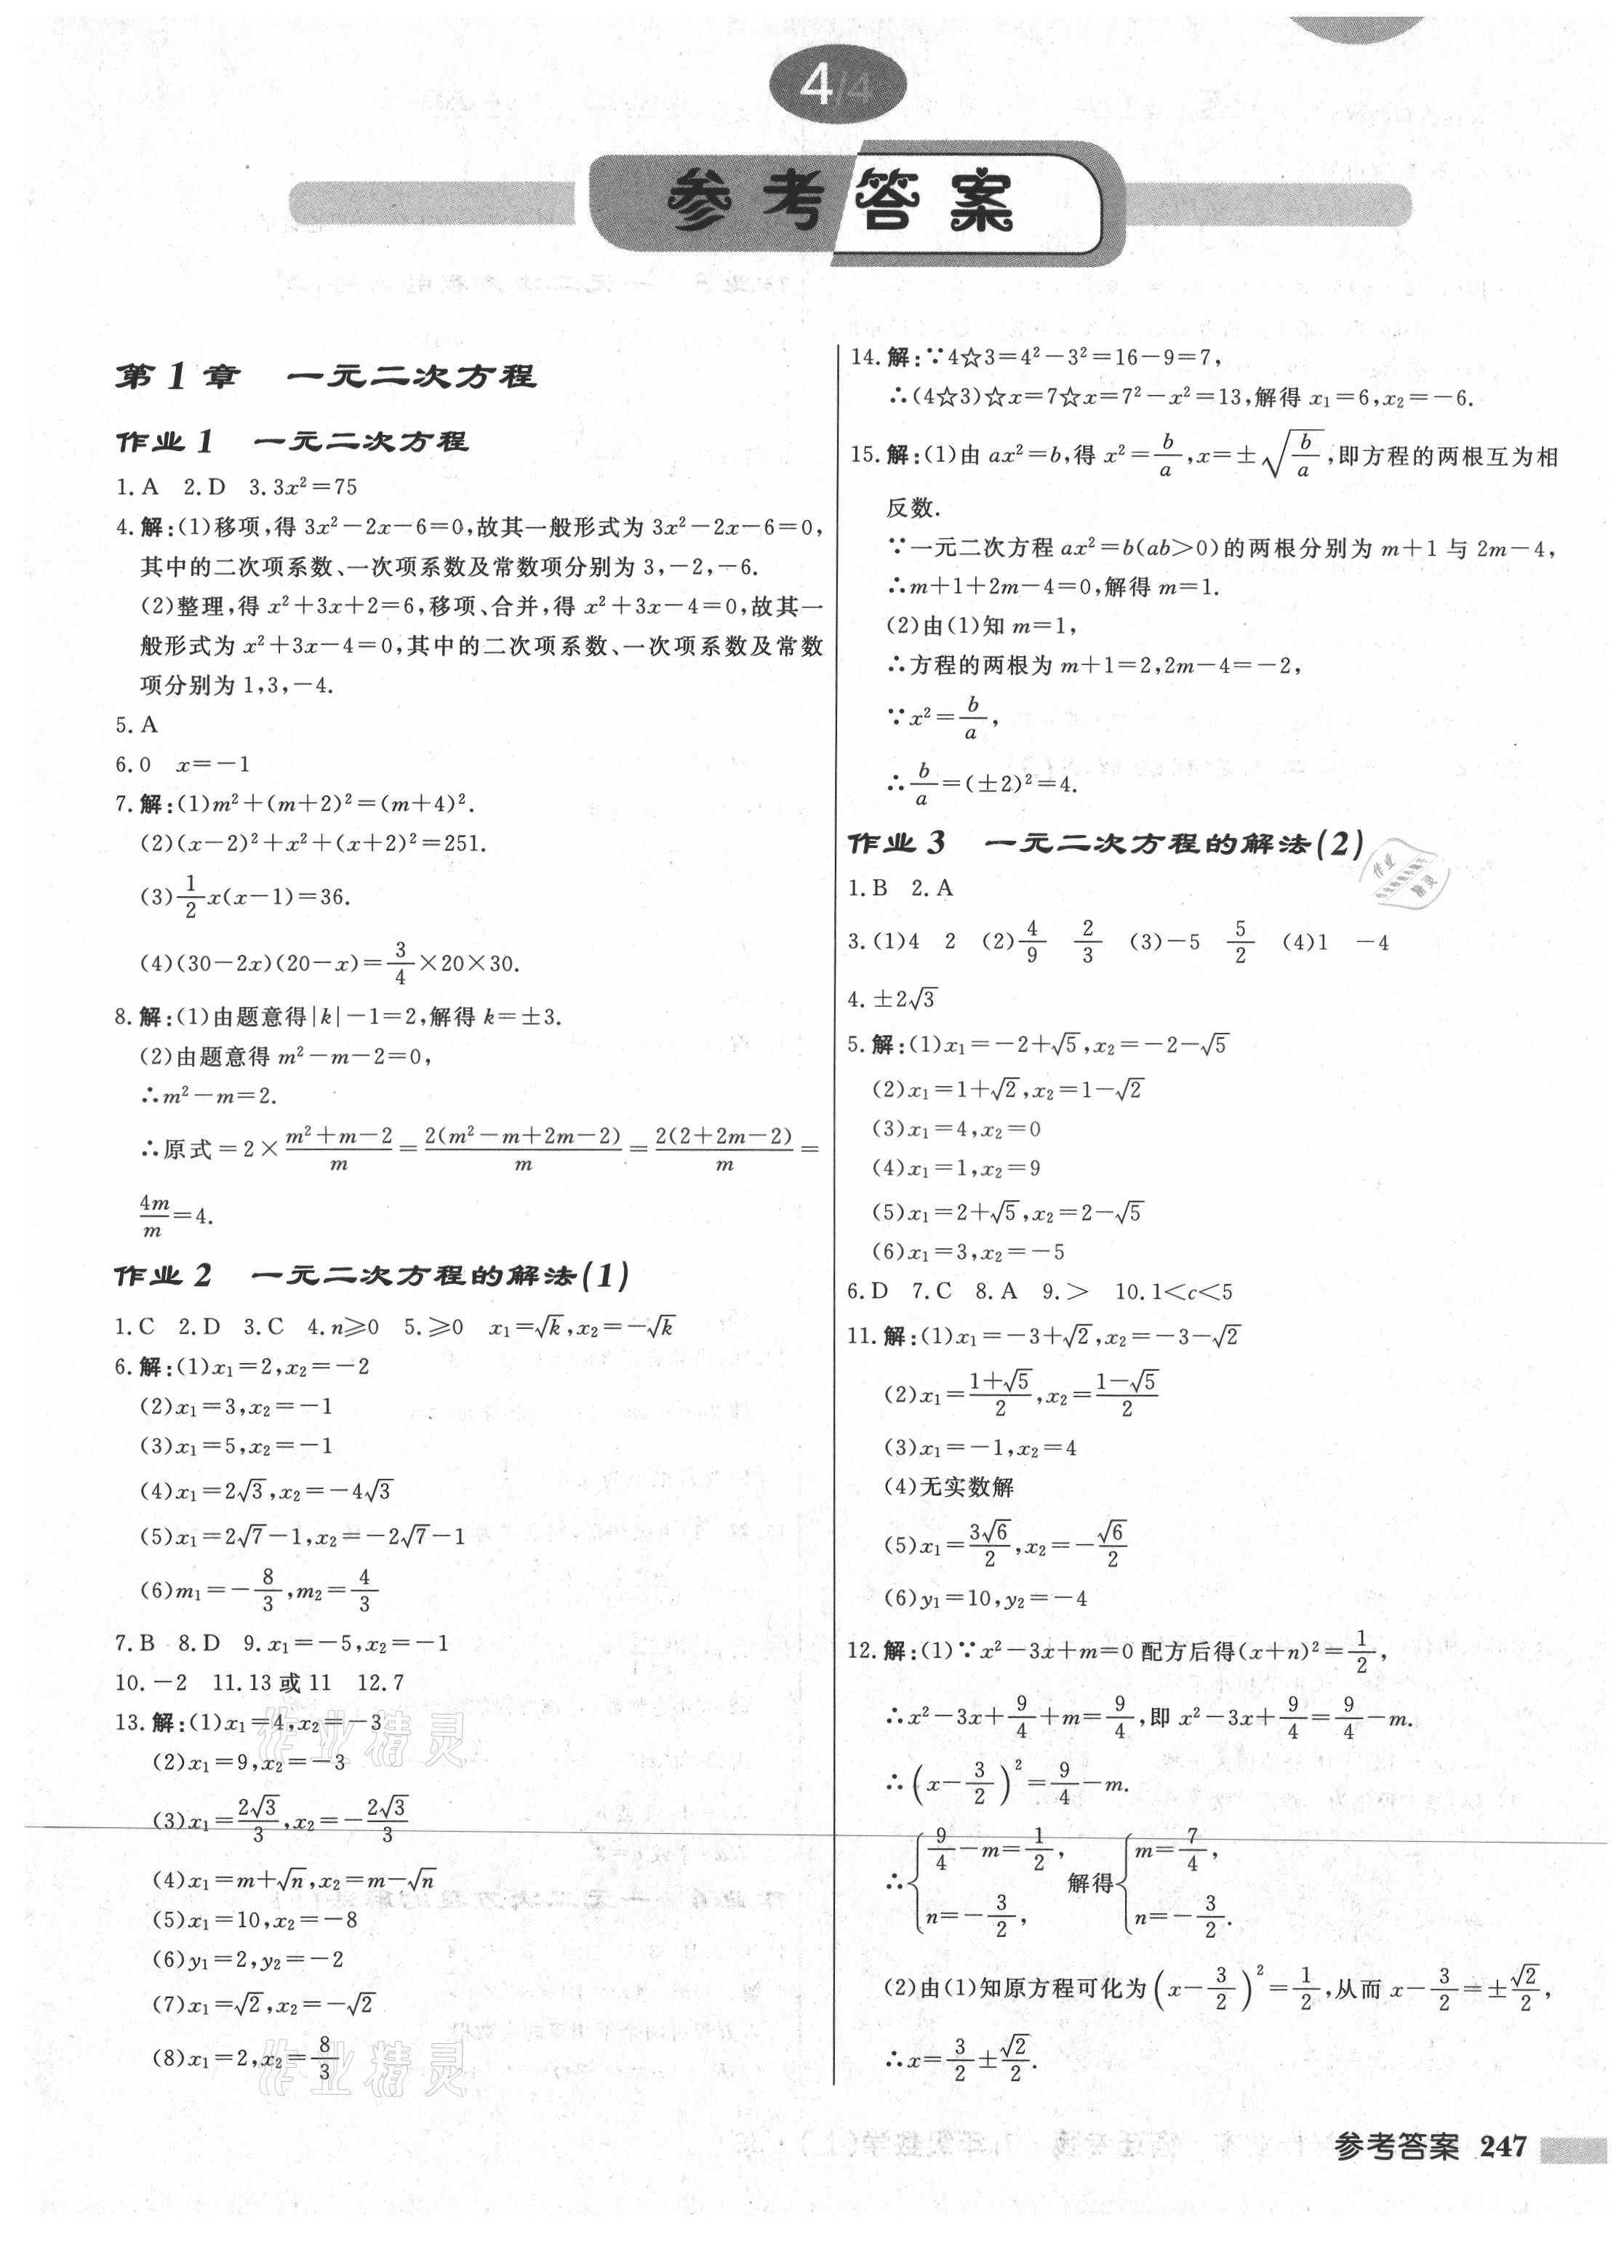 4/4
参考答案
第1章 一元二次方程
作业1 一元二次方程
1.A 2.D 3.3x²=75
4.解:(1)移项,得3x²-2x-6=0,故其一般形式为3x²-2x-6=0,
其中的二次项系数、一次项系数及常数项分别为3,-2,-6.
(2)整理,得x²+3x+2=6,移项、合并,得x²+3x-4=0,故其一
般形式为x²+3x-4=0,其中的二次项系数、一次项系数及常数
项分别为1,3,-4.
5.A
6.0 x=-1
7.解:(1)m²+(m+2)²=(m+4)².
(2)(x-2)²+x²+(x+2)²=251.
(3)1/2x(x-1)=36.
(4)(30-2x)(20-x)=3/4×20×30.
8.解:(1)由题意得|k|-1=2,解得k=±3.
(2)由题意得m²-m-2=0,
∴m²-m=2.
∴原式=2×(m²+m-2)/m=2(m²-m+2m-2)/m=2(2+2m-2)/m=
4m/m=4.
作业2 一元二次方程的解法(1)
1.C 2.D 3.C 4.n≥0 5.≥0 x₁=√k,x₂=-√k
6.解:(1)x₁=2,x₂=-2
(2)x₁=3,x₂=-1
(3)x₁=5,x₂=-1
(4)x₁=2√3,x₂=-4√3
(5)x₁=2√7-1,x₂=-2√7-1
(6)m₁=-8/3,m₂=4/3
7.B 8.D 9.x₁=-5,x₂=-1
10.-2 11.13或11 12.7
13.解:(1)x₁=4,x₂=-3
(2)x₁=9,x₂=-3
(3)x₁=2√3/3,x₂=-2√3/3
(4)x₁=m+√n,x₂=m-√n
(5)x₁=10,x₂=-8
(6)y₁=2,y₂=-2
(7)x₁=√2,x₂=-√2
(8)x₁=2,x₂=8/3
14.解:∵4☆3=4²-3²=16-9=7,
∴(4☆3)☆x=7☆x=7²-x²=13,解得x₁=6,x₂=-6.
15.解:(1)由ax²=b,得x²=b/a,x=±√(b/a),即方程的两根互为相
反数.
∵一元二次方程ax²=b(ab>0)的两根分别为m+1与2m-4,
∴m+1+2m-4=0,解得m=1.
(2)由(1)知m=1,
∴方程的两根为m+1=2,2m-4=-2,
∵x²=b/a,
∴b/a=(±2)²=4.
作业3 一元二次方程的解法(2)
作业精灵
1.B 2.A
3.(1)4 2 (2)4/9 2/3 (3)-5 5/2 (4)1 -4
4.±2√3
5.解:(1)x₁=-2+√5,x₂=-2-√5
(2)x₁=1+√2,x₂=1-√2
(3)x₁=4,x₂=0
(4)x₁=1,x₂=9
(5)x₁=2+√5,x₂=2-√5
(6)x₁=3,x₂=-5
6.D 7.C 8.A 9.> 10.1<c<5
11.解:(1)x₁=-3+√2,x₂=-3-√2
(2)x₁=(1+√5)/2,x₂=(1-√5)/2
(3)x₁=-1,x₂=4
(4)无实数解
(5)x₁=3√6/2,x₂=-√6/2
(6)y₁=10,y₂=-4
12.解:(1)∵x²-3x+m=0配方后得(x+n)²=1/2,
∴x²-3x+9/4+m=9/4,即x²-3x+9/4=9/4-m.
∴(x-3/2)²=9/4-m.
∴{9/4-m=1/2, n=-3/2, 解得{m=7/4, n=-3/2.
(2)由(1)知原方程可化为(x-3/2)²=1/2,从而x-3/2=±√2/2,
∴x=3/2±√2/2.
作业精灵
作业精灵
参考答案 247